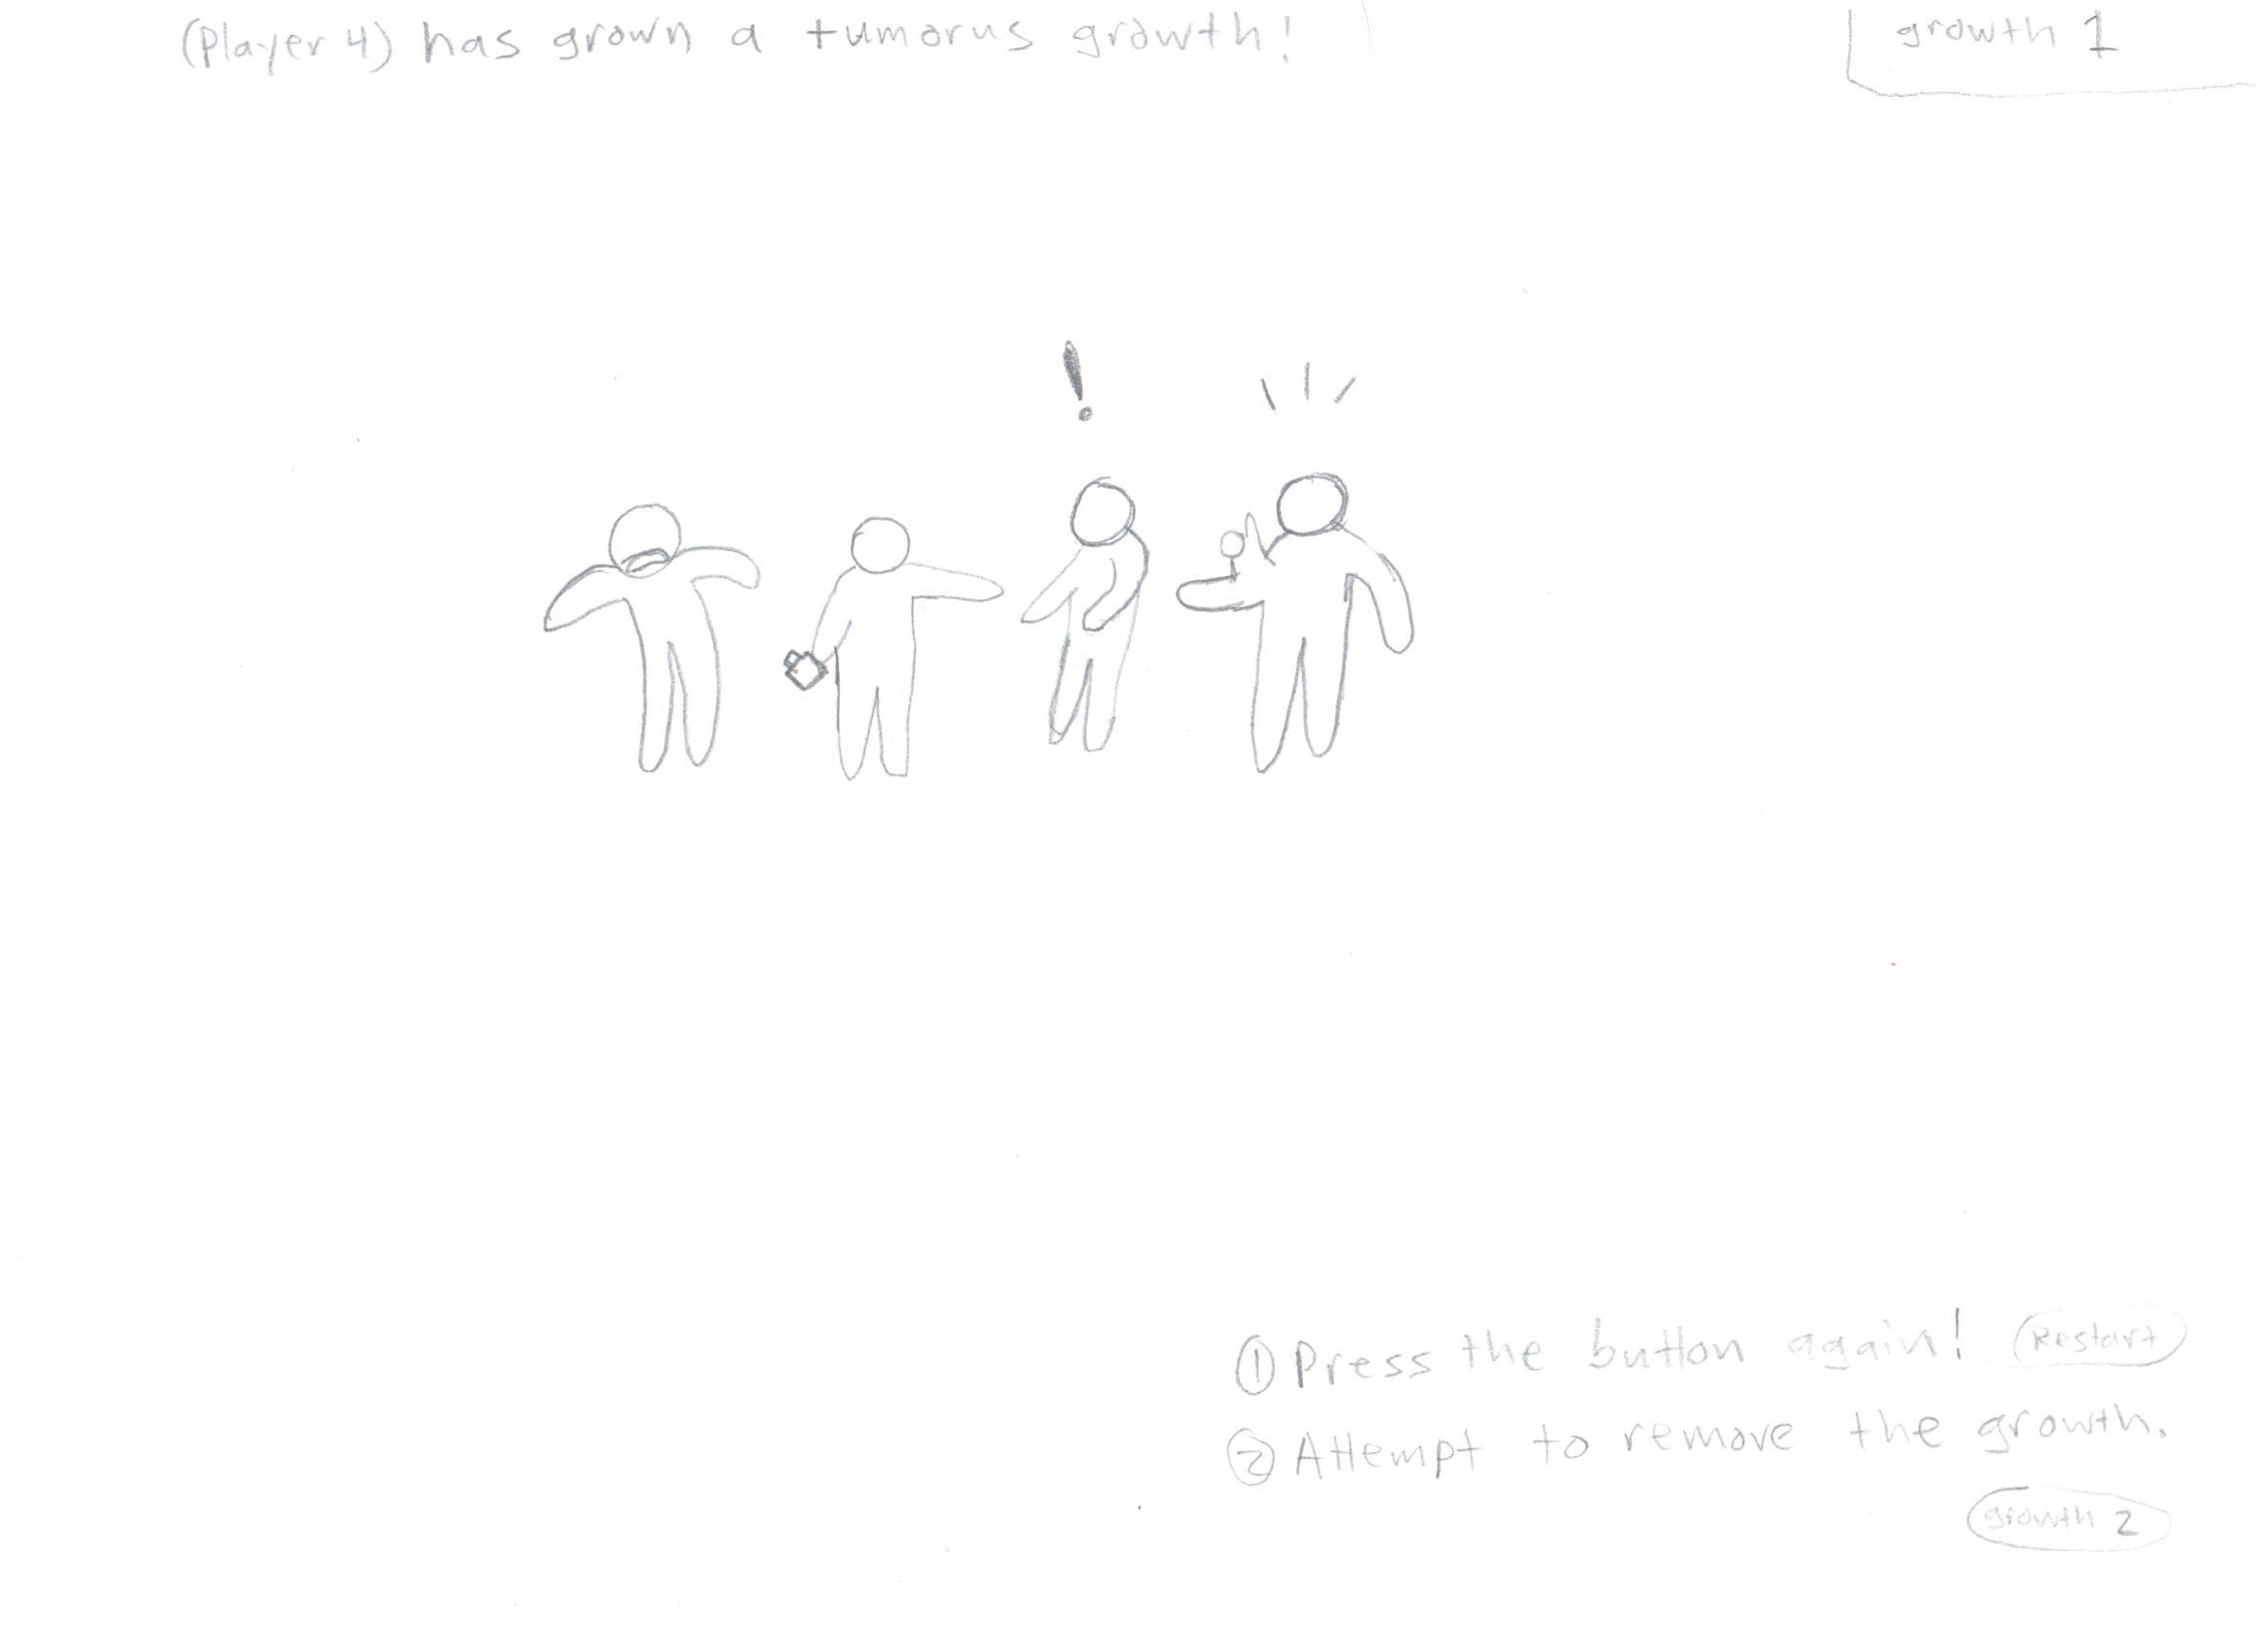 (Player 4) has grown a tumorus growth!
growth 1
① Press the button again! Restart
② Attempt to remove the growth.
growth 2